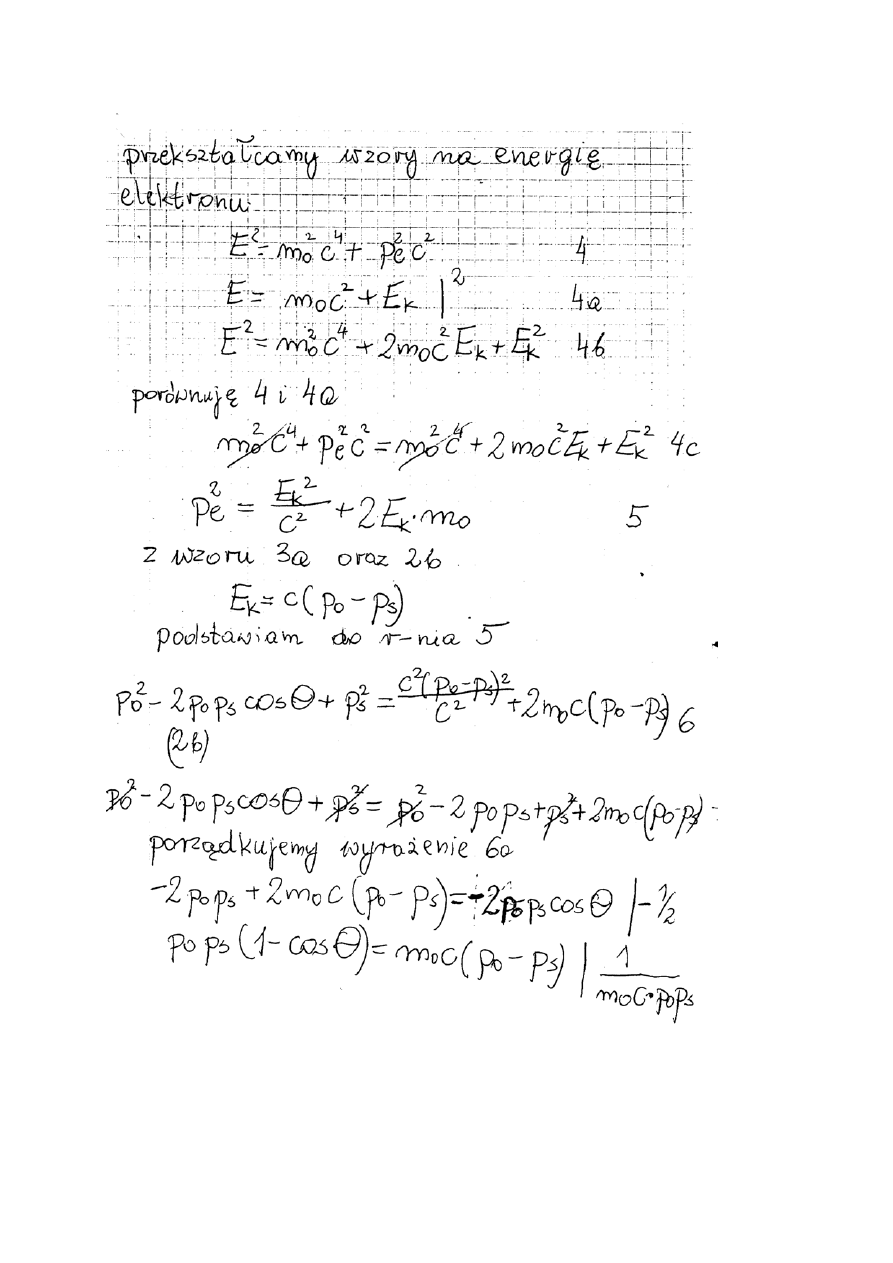 przekształcamy wzory na energię
elektronu
E² = m₀²c⁴ + pₑ²c² 4
E = m₀c² + Eₖ |² 4a
E² = m₀²c⁴ + 2m₀c²Eₖ + Eₖ² 4b
porównuję 4 i 4a
m₀²c⁴ + pₑ²c² = m₀²c⁴ + 2m₀c²Eₖ + Eₖ² 4c
pₑ² = Eₖ²/c² + 2Eₖ·m₀ 5
z wzoru 3a oraz 2b
Eₖ = c(p₀ - pₛ)
podstawiam do r-nia 5
p₀² - 2p₀pₛcosΘ + pₛ² = c²(p₀-pₛ)²/c² + 2m₀c(p₀-pₛ) 6
(2b)
p₀² - 2p₀pₛcosΘ + pₛ² = p₀² - 2p₀pₛ + pₛ² + 2m₀c(p₀-pₛ)
porządkujemy wyrażenie 6a
-2p₀pₛ + 2m₀c(p₀ - pₛ) = -2p₀pₛcosΘ |-½
p₀pₛ(1 - cosΘ) = m₀c(p₀ - pₛ) | 1/m₀c·p₀pₛ